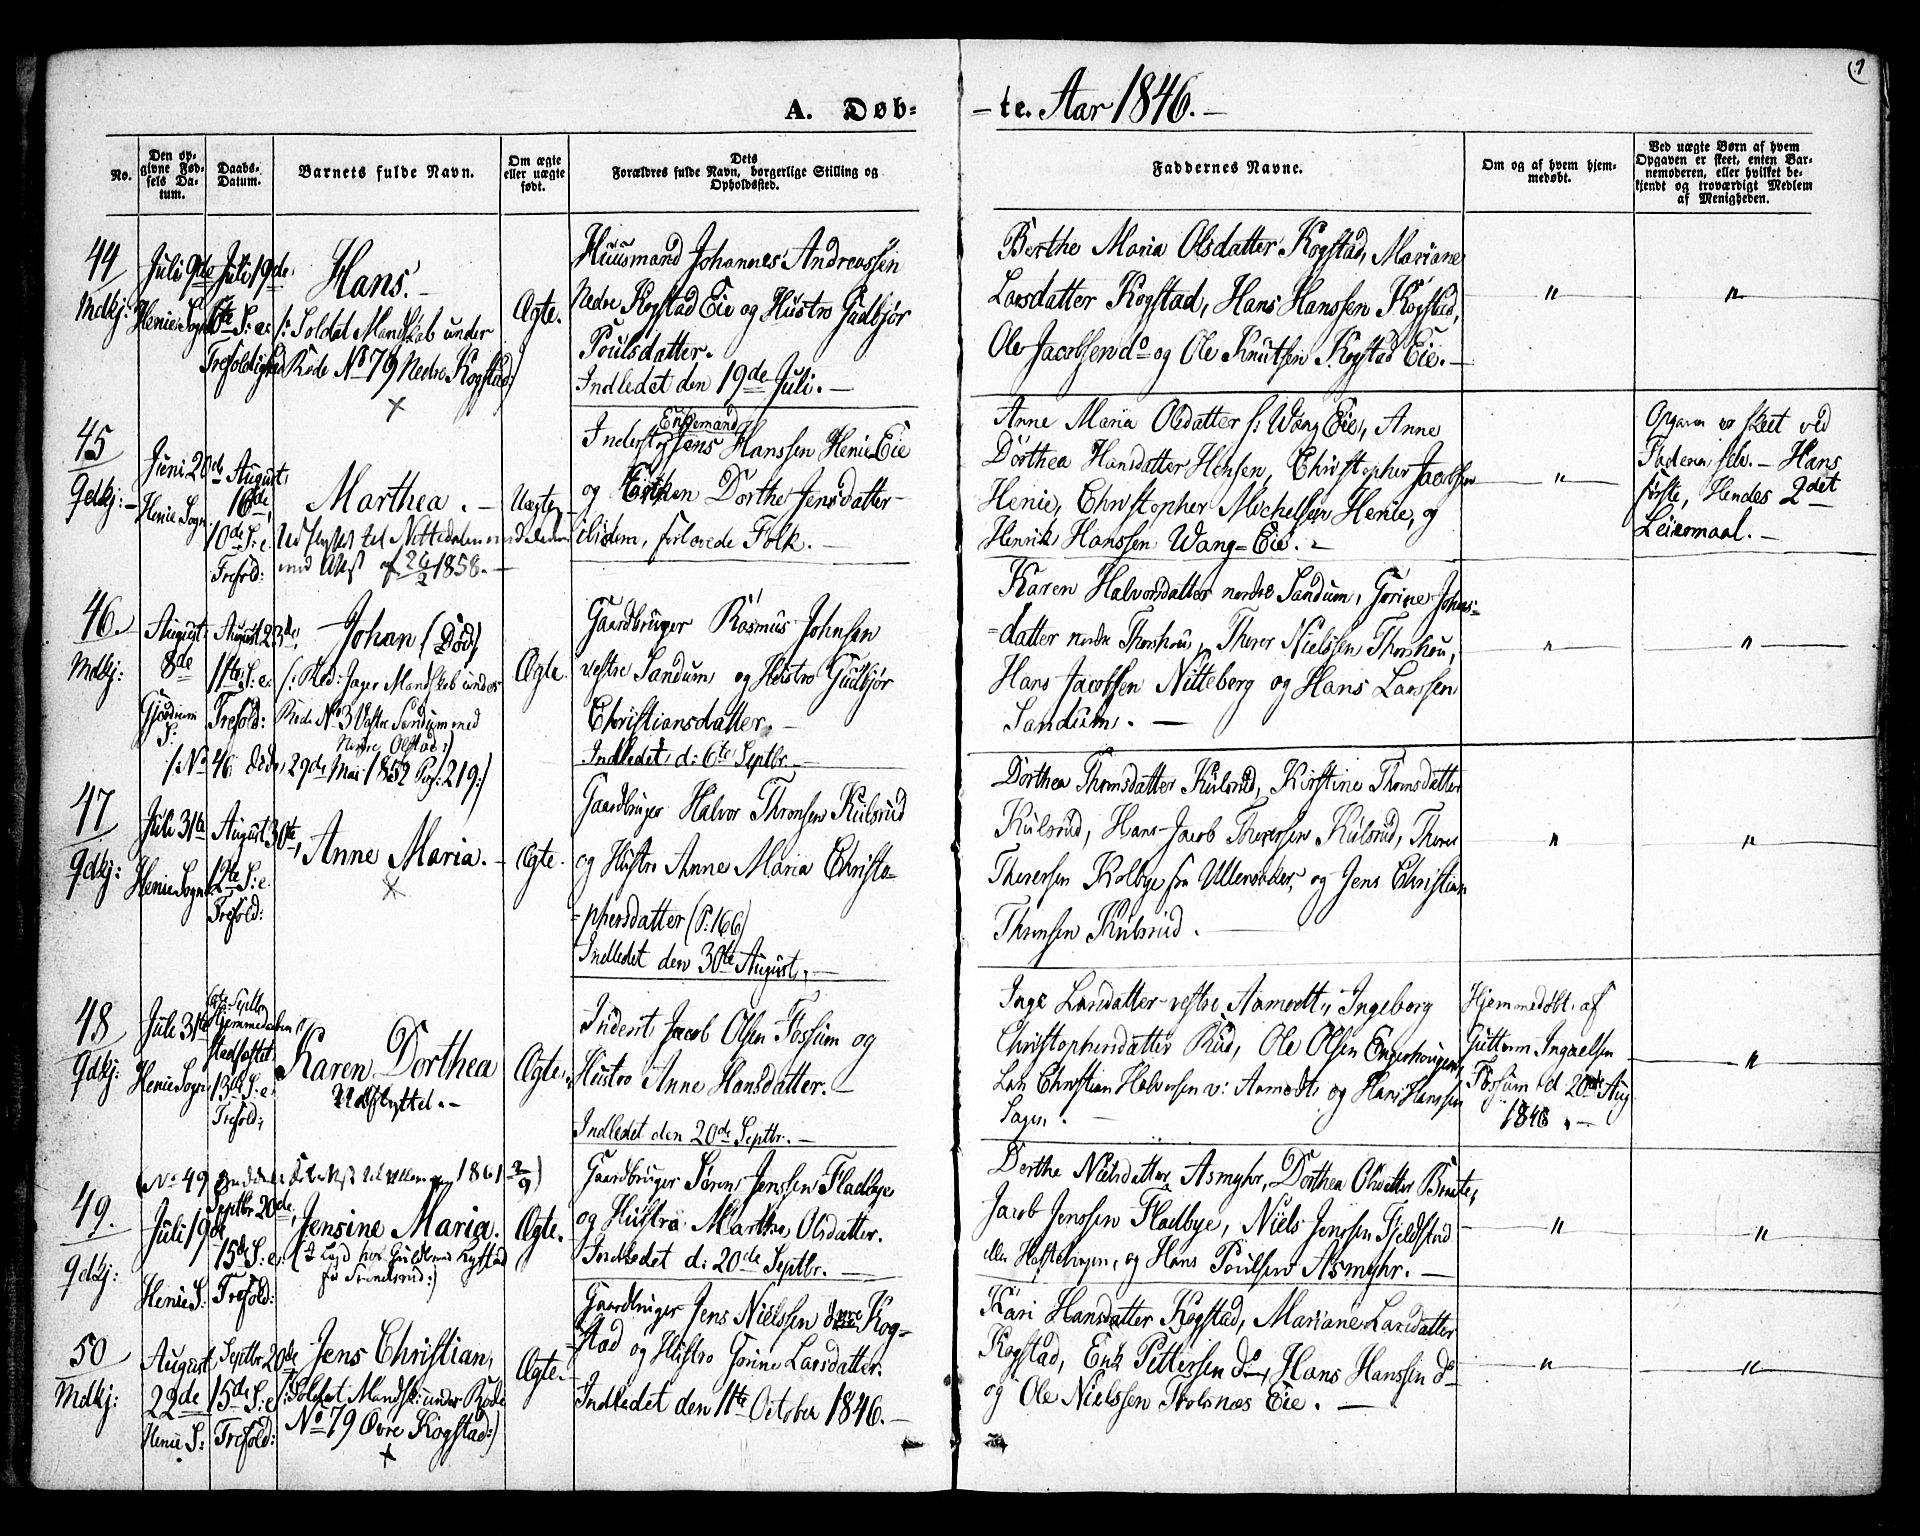 A. Døb-
-te. Aar 1846.-
No.
Den op-
givne Fød-
sels Da-
tum.
Daabs-
Datum.
Barnets fulde Navn.
Om ægte
eller uægte
født.
Dets
Forældres fulde Navn, borgerlige Stilling og
Opholdssted.
Faddernes Navne.
Om og af hvem hjem-
medøbt.
Ved uægte Børn af hvem
Opgaven er skeet, enten Bar-
nemoderen, eller hvilket be-
kjendt og troværdigt Medlem
af Menigheden.
44
Mdkj:
Juli 9de
Henie Sogn
Juli 19de
6te S: e:
Trefoldighed
Hans.-
/: Soldat Mandskab under
Rode No 79 Nedre Kogstad:/
Ægte.
Huusmand Johannes Andreassen
Nedre Kogstad Eie og Hustro Gudbjør
Poulsdatter.
Indledet den 19de Juli.-
Berthe Maria Olsdatter Kogstad, Mariane
Larsdatter Kogstad, Hans Hanssen Kogstad,
Ole Jacobsen do og Ole Knutsen Kogstad Eie.-
"
"
45
Qdkj:-
Juni 20de
Henie Sogn
August
16de
10de S: e.
Trefold:
Marthea.-
Udflyttet til Nittedalen
med Attest af 26/2 1858.-
Uægte
Enkemand
Inderst Hans Hanssen Henie Eie
og Dorthe Jensdatter
ibidem, forlovede Folk.-
Anne Maria Olsdatter Wang Eie, Anne
Dorthea Hansdatter Hensen, Christopher Jacobsen
Henie, Christopher Michelsen Henie, og
Henrik Hanssen Wang-Eie.-
"
Opgaven er skeet ved
Faderen selv.- Hans
første, Hendes 2det
Leiermaal.-
46.
Mdkj:
August
8de
Gjerdrum
S:
August 23de
11te S: e.
Trefold:
Johan (Død)
Jæger Mandskab under
Rode No 3 Vestre Sandum med
Nedre Olstad:/
/: No 46 døde 29de Mai 1852 Pag: 219:/
Ægte.
Gaardbruger Rasmus Johnsen
vestre Sandum og Hustro Gudbjør
Christiansdatter.-
Indledet d: 6te Septbr.-
Karen Halvorsdatter nordre Sandum, Gorine Johns-
=datter nordre, Thorer Nielssen,
Hans Jacobsen Nitteberg og Hans Larssen
Sandum.-
"
"
47
Qdkj:
Juli 31te
Henie Sogn
August 30te,
12te S: e.
Trefold:
Anne Maria.-
Ægte.
Gaardbruger Halvor Thronsen Kulsrud
og Hustro Anne Maria Christo-
=phersdatter (P: 166)
Indledet den 30te August.-
Dorthea Thomsdatter Kulsrud, Kirstine Thomsdatter
Kulsrud, Hans Jacob Thoresen Kulsrud, Thorer
Thoresen Kolbye fra Ullensaker, og Jens Christian
Thronsen Kulsrud.-
"
"
48
Qdkj:
Juli 31te
Henie Sogn
Septbr
Hjemmedaaben
stadfæstet
13de S: e.
Trefold:
Karen Dorthea
Udflyttet.-
Ægte.
Inderst Jacob Olsen Fossum og
Hustro Anne Hansdatter.-
Indledet den 20de Septbr.-
Inge Larsdatter vestre Aamodt, Ingeborg
Christophersdatter Rud, Ole Olsen Engerhougen,
Lars Christian Halvorsen v: Aamodt og Hans Hanssen
Sagen.-
Hjemmedøbt af
Guttorm Ingvelsen
Fossum d. 20de Aug
1846.-
"
49.
Qdkj:
(No 49 1861 2/9)
Juli 19de
Henie S:
Septbr 20de,
15de S: e.
Trefold:
Jensine Maria.
Ægte.
Gaardbruger Søren Jenssen Fladbye
og Hustro Marthe Olsdatter.
Indledet d: 20de Septbr.-
Dorthe Nielsdatter Asmyhr, Dorthea Olsdatter Braate,
Jacob Jenssen Fladbye, Niels Jenssen Fjeldstad
og Hans Poulsen Asmyhr.-
"
"
50
Mdkj:
August
22de
Henie S:
Septbr 20de
15de S: e
Trefold:
Jens Christian,
/: Soldat Mandsk: under Rode
No 79 Øvre Kogstad:/
Ægte.-
Gaardbruger Jens Nielssen øvre Kog-
stad og Hustro Gorine Larsdatter.
Indledet den 11te October 1846.-
Kari Hansdatter Kogstad, Mariane Larsdatter
Kogstad, Erik Pettersen do, Hans Hanssen do
og Ole Nielssen Eie.-
"
"